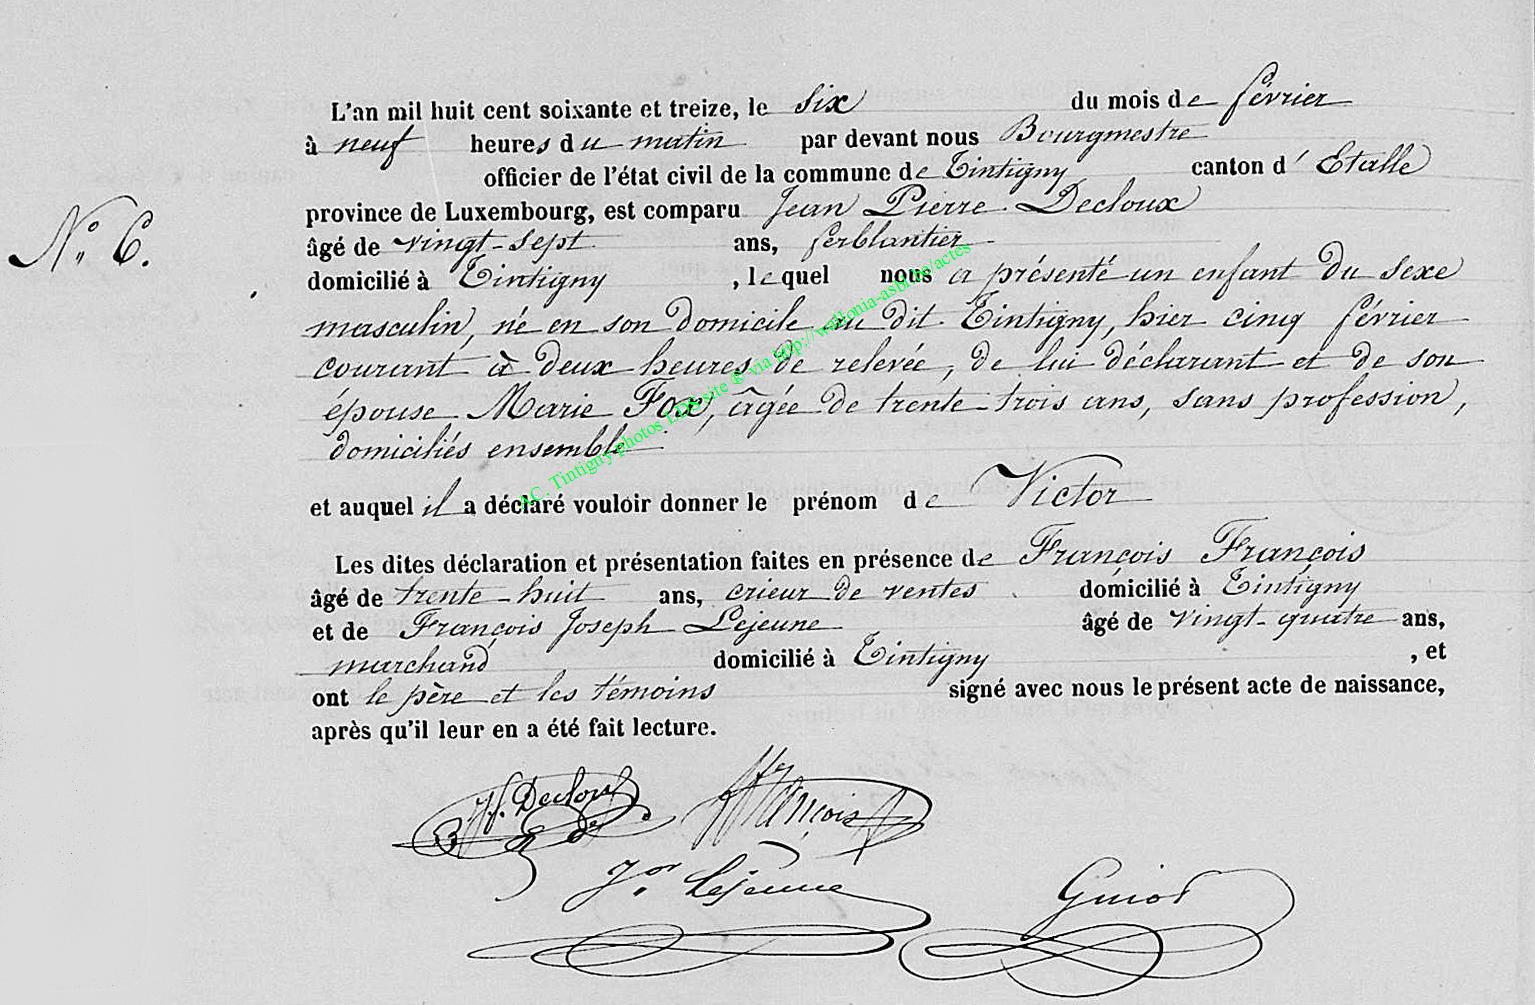 L'an mil huit cent soixante et treize, le six du mois de février
à neuf heures du matin par devant nous Bourgmestre
officier de l'état civil de la commune de Tintigny canton d' Etalle
province de Luxembourg, est comparu Jean Pierre Decloux
N.° 6.
âgé de vingt-sept ans, ferblantier
domicilié à Tintigny , lequel nous a présenté un enfant du sexe
masculin, né en son domicile au dit Tintigny, hier cinq février
courant à deux heures de relevée, de lui déclarant et de son
épouse Marie Fox, âgée de trente-trois ans, sans profession,
domiciliés ensemble
et auquel il a déclaré vouloir donner le prénom de Victor
Les dites déclaration et présentation faites en présence de François François
âgé de trente-huit ans, crieur de ventes domicilié à Tintigny
et de François Joseph Lejeune âgé de vingt-quatre ans,
marchand domicilié à Tintigny , et
ont le père et les témoins signé avec nous le présent acte de naissance,
après qu'il leur en a été fait lecture.
Decloux François
Lejeune Guiot
AC. Tintigny photos LDS site © via http://wallonia-asbl.be/actes